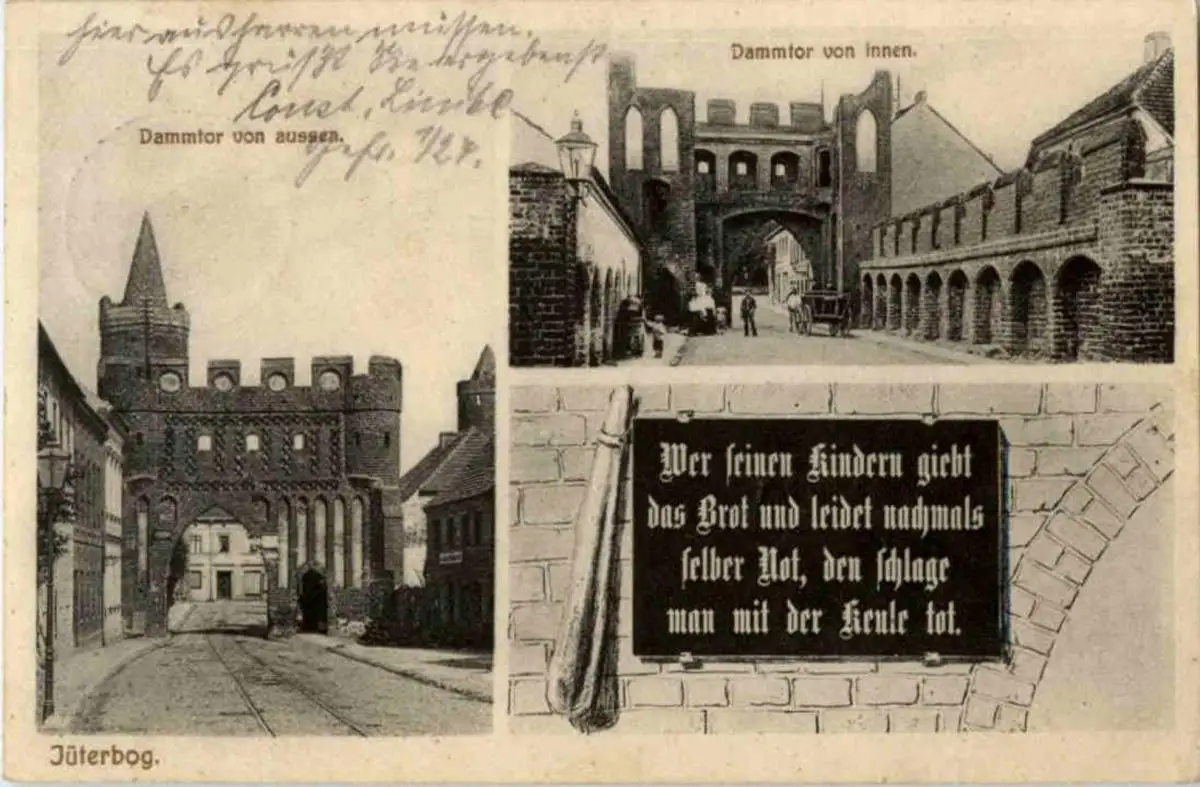 hier ausharren müssen.
Es grüßt Sie ergebenst
Const. Linke
Gefr. 1/27.
Dammtor von aussen.
Dammtor von innen.
Wer seinen Kindern giebt
das Brot und leidet nachmals
selber Not, den schlage
man mit der Keule tot.
Jüterbog.